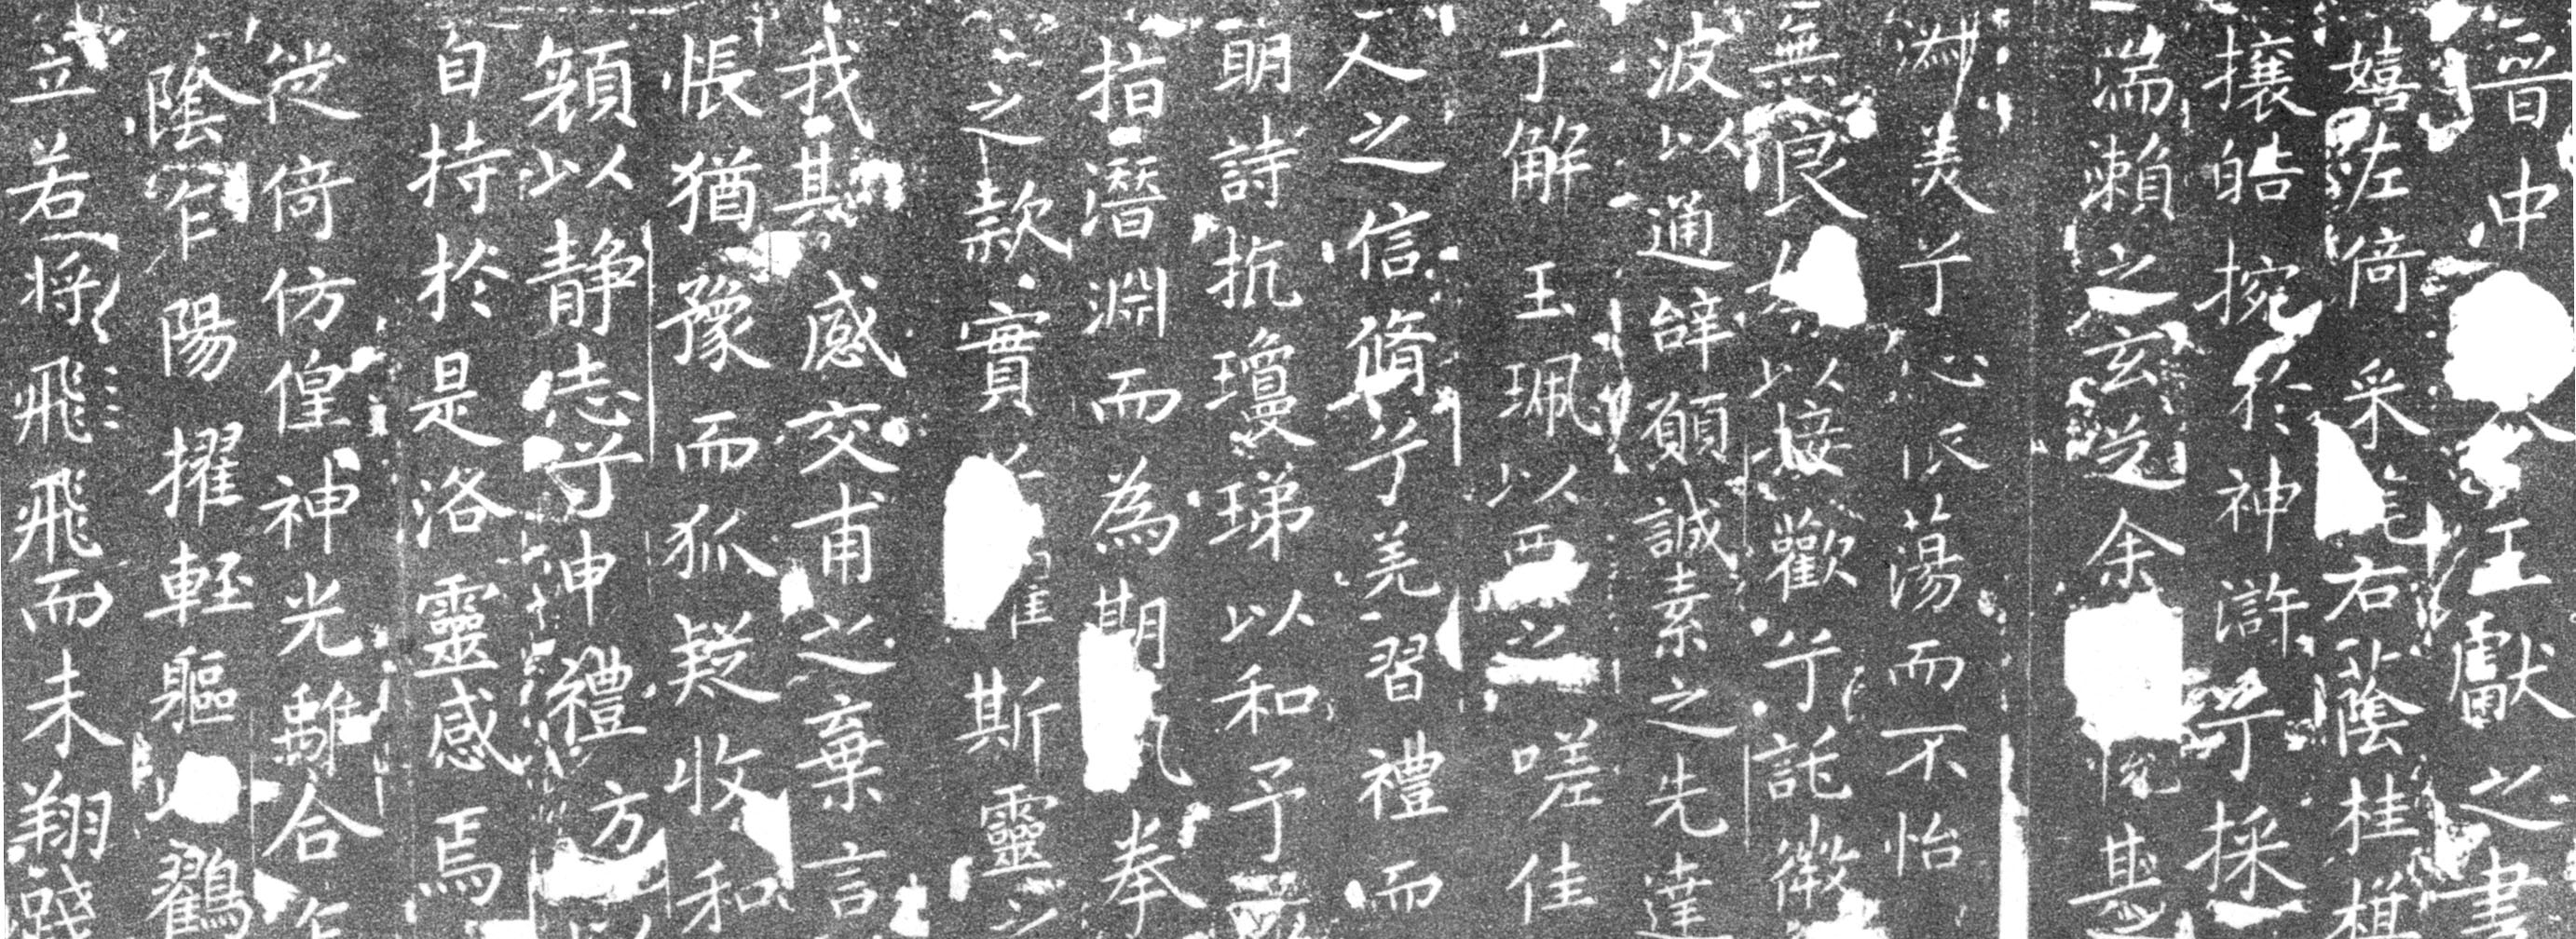 晉中令王獻之書
嬉左倚采旄右蔭桂旗
攘皓捥於神滸兮採
湍瀨之玄芝余悅其
淑美兮心振蕩而不怡
無良媒以接歡兮託微
波以通辭願誠素之先達
兮解玉珮以要之嗟佳
人之信脩兮羌習禮而
明詩抗瓊珶以和予
指潛淵而為期執拳
之款實懼斯靈之
我欺感交甫之棄言
悵猶豫而狐疑收和
顏以静志兮申禮防以
自持於是洛靈感焉
徙倚仿偟神光離合乍
陰乍陽擢輕軀以鶴
立若將飛飛而未翔踐